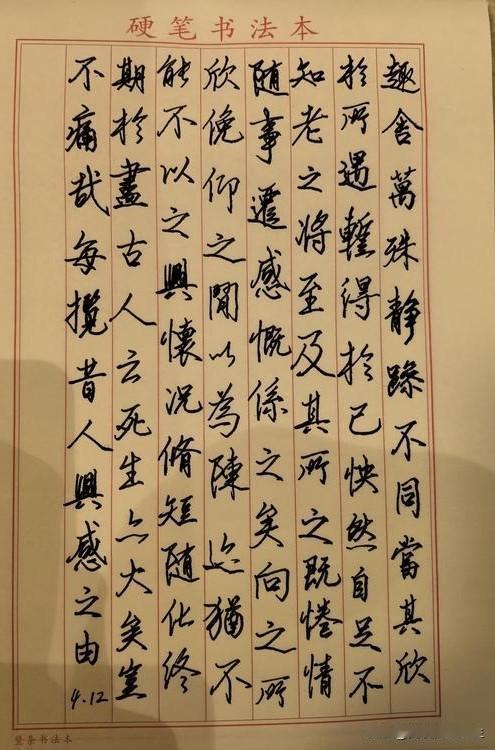 硬笔书法本
趣舍萬殊静躁不同當其欣
於所遇暫得於己怏然自足不
知老之將至及其所之既惓情
随事遷感慨係之矣向之所
欣俛仰之間以為陳迹猶不
能不以之興懷况脩短随化終
期於盡古人云死生亦大矣豈
不痛哉每攬昔人興感之由
4.12
竖条书法本